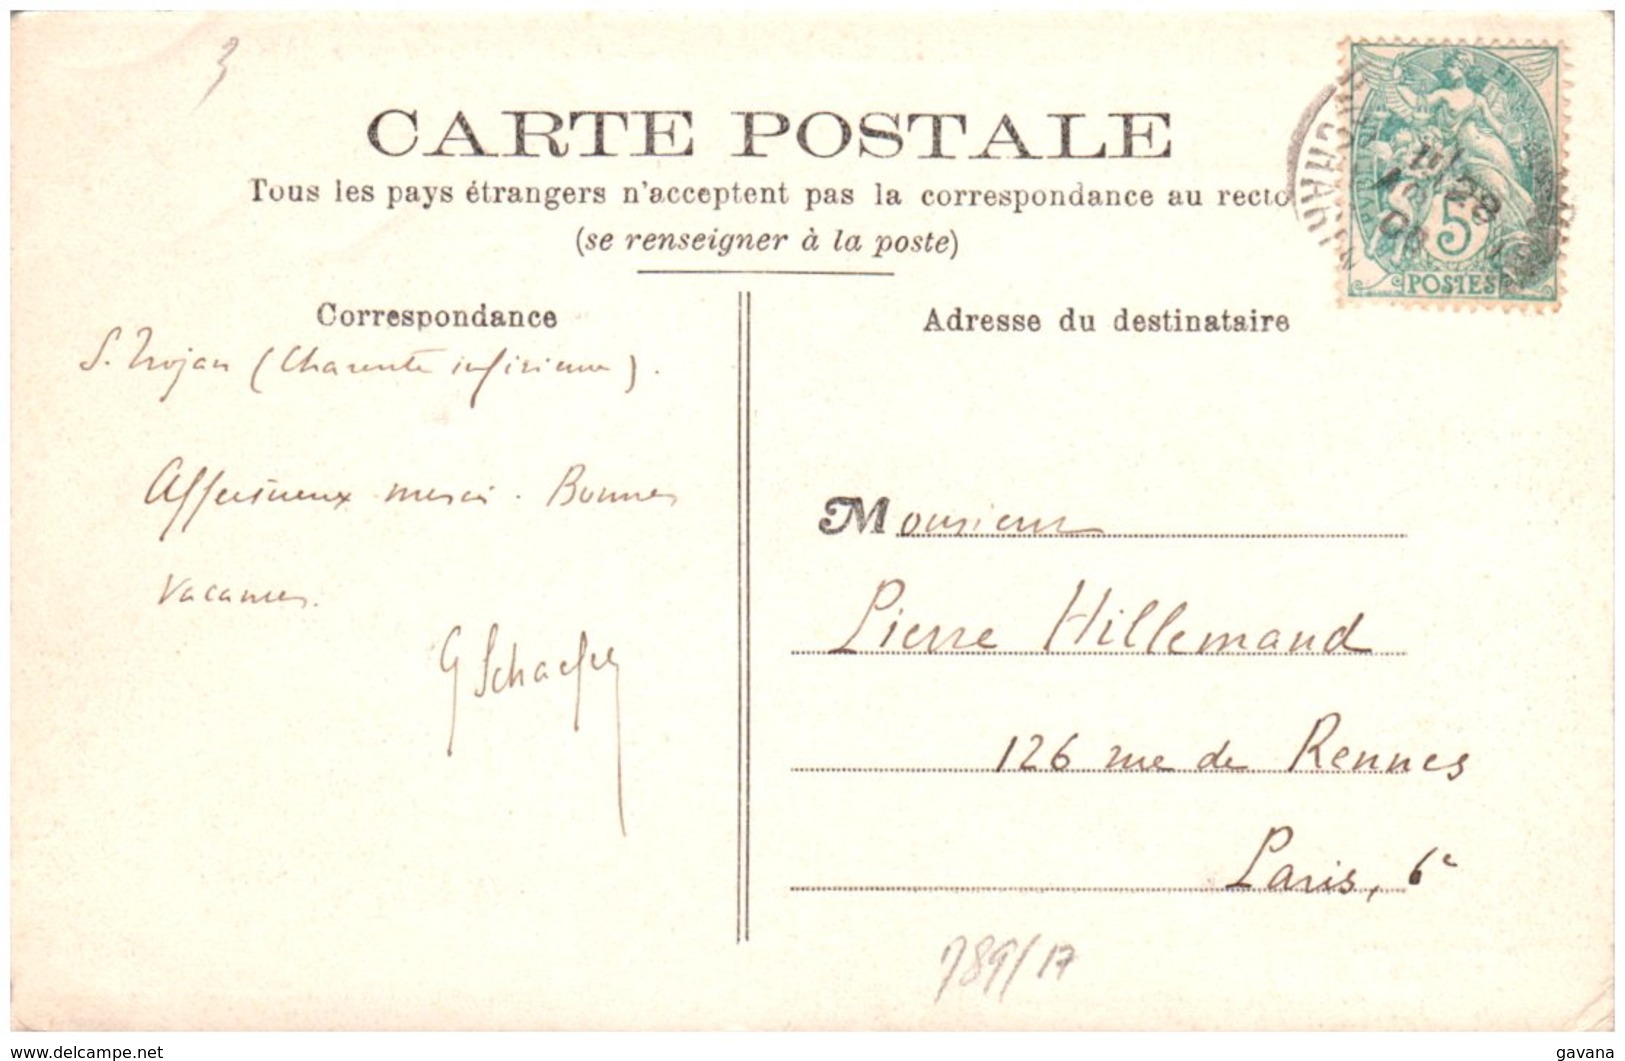 3
CARTE POSTALE
Tous les pays étrangers n'acceptent pas la correspondance au recto
(se renseigner à la poste)
Correspondance
S. Trojan (Charente inférieure).
Affectueux merci. Bonnes
vacances.
G Schaefer
Adresse du destinataire
Monsieur
Pierre Hillemand
126 rue de Rennes
Paris, 6e
789/17
28
08
5
POSTES
www.delcampe.net
gavana